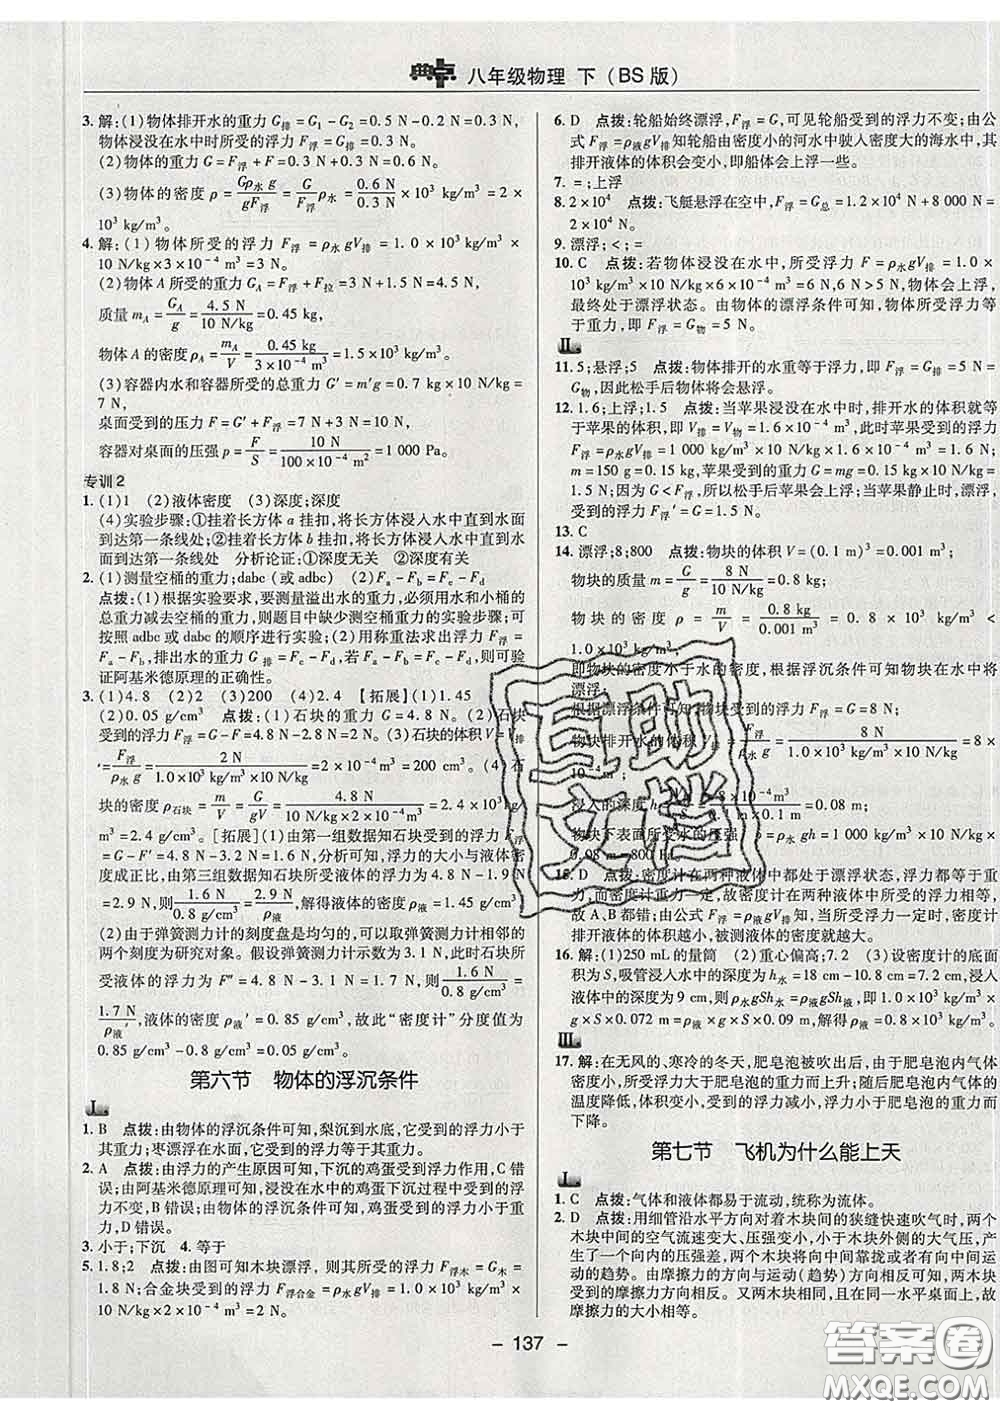 典点 八年级物理 下(BS版)
3. 解:(1)物体排开水的重力 G排=G₁-G₂=0.5 N-0.2 N=0.3 N,
物体浸没在水中时所受的浮力 F浮=G排=0.3 N。
(2)物体的重力 G=F浮+F=0.3 N+0.3 N=0.6 N。
(3)物体的密度 ρ=Gρ水 g/gF浮=G/F浮 ρ水=0.6 N/0.3 N×10³ kg/m³=2×
10³ kg/m³。
4. 解:(1)物体所受的浮力 F浮=ρ水 gV排=1.0×10³ kg/m³×
10 N/kg×3×10⁻⁴ m³=3 N。
(2)物体A所受的重力 G_A=F浮+F拉=3 N+1.5 N=4.5 N,
质量 m_A=G_A/g=4.5 N/10 N/kg=0.45 kg,
物体 A 的密度 ρ_A=m_A/V=0.45 kg/3×10⁻⁴ m³=1.5×10³ kg/m³。
(3)容器内水和容器所受的总重力 G′=m′g=0.7 kg×10 N/kg=
7 N,
桌面受到的压力 F=G′+F浮=7 N+3 N=10 N,
容器对桌面的压强 p=F/S=10 N/100×10⁻⁴ m²=1 000 Pa。
专训2
1. (1)1 (2)液体密度 (3)深度;深度
(4)实验步骤:①挂着长方体 a 挂扣,将长方体浸入水中直到水面
到达第一条线处;②挂着长方体 b 挂扣,将长方体浸入水中直到水面
到达第一条线处 分析论证:①深度无关 ②深度有关
2. (1)测量空桶的重力;dabc(或 adbc) (2)Fa-Fb=Fc-Fd
点拨:(1)根据实验要求,要测量溢出水的重力,必须用水和小桶的
总重力减去空桶的重力,则题目中缺少测空桶重力的实验步骤;可
按照 adbc 或 dabc 的顺序进行实验;(2)用称重法求出浮力 F浮=
Fa-Fb,排出水的重力 G排=Fc-Fd,若 Fa-Fb=Fc-Fd,则可验
证阿基米德原理的正确性。
3. (1)4.8 (2)2 (3)200 (4)2.4 【拓展】(1)1.45
(2)0.05 g/cm³ 点拨:(1)石块的重力 G=4.8 N。(2)石块
受到的浮力 F浮=G-F=4.8 N-2.8 N=2 N。(3)石块的体积 V=V排
=F浮/ρ水 g=2 N/1.0×10³ kg/m³×10 N/kg=2×10⁻⁴ m³=200 cm³。(4)石
块的密度 ρ石块=m/V=G/gV=4.8 N/10 N/kg×2×10⁻⁴ m³=2.4×10³ kg/
m³=2.4 g/cm³。[拓展](1)由第一组数据知石块受到的浮力 F浮
=G-F′=4.8 N-3.2 N=1.6 N,分析可知,浮力的大小与液体密
度成正比,由第三组数据知石块所受的浮力为 4.8 N-1.9 N
=2.9 N,则1.6 N/0.8 g/cm³=2.9 N/ρ液,解得液体的密度 ρ液=1.45 g/cm³。
(2)由于弹簧测力计的刻度盘是均匀的,可以取弹簧测力计相邻的
两个刻度为研究对象。假设弹簧测力计示数为 3.1 N,此时石块所
受液体的浮力 F″=4.8 N-3.1 N=1.7 N,则1.6 N/0.8 g/cm³=
1.7 N/ρ液′,液体的密度 ρ液′=0.85 g/cm³,故此“密度计”分度值为
0.85 g/cm³-0.8 g/cm³=0.05 g/cm³。
第六节 物体的浮沉条件
Ⅰ
1. B 点拨:由物体的浮沉条件可知,梨沉到水底,它受到的浮力小于
其重力;枣漂浮在水面,它受到的浮力等于其重力。
2. A 点拨:由浮力的产生原因可知,下沉的鸡蛋受到浮力作用,C错
误;由阿基米德原理可知,浸没在水中的鸡蛋下沉过程中受到的浮
力不变,B错误;由物体的浮沉条件可知,鸡蛋受到的浮力小于重
力,D错误。
3. 小于;下沉 4. 等于
5. 1.8;2 点拨:由图可知木块漂浮,则其所受的浮力 F浮木=G木=
1.8 N;合金块受到的浮力 F浮合金=ρ水 gV排=1.0×10³ kg/m³×10
N/kg×2×10⁻⁴ m³=2 N。
6. D 点拨:轮船始终漂浮,F浮=G,可见轮船受到的浮力不变;由公
式 F浮=ρ液gV排知轮船由密度小的河水中驶入密度大的海水中,其
排开液体的体积会变小,即船体会上浮一些。
7. =;上浮
8. 2×10⁴ 点拨:飞艇悬浮在空中,F浮=G总=1.2×10⁴ N+8 000 N=
2×10⁴ N。
9. 漂浮;<;=
10. C 点拨:若物体浸没在水中,所受浮力 F=ρ水gV排=1.0×
10³ kg/m³×10 N/kg×6×10⁻⁴ m³=6 N,6 N>5 N,物体会上浮,
最终处于漂浮状态。由物体的漂浮条件可知,物体所受浮力等
于重力,即 F浮=G物=5 N。
Ⅱ
11. 5;悬浮;5 点拨:物体排开的水重等于浮力,即 F浮=G排=5 N=
G物,因此松手后物体将会悬浮。
12. 1.6;上浮;1.5 点拨:当苹果浸没在水中时,排开水的体积就等
于苹果的体积,即 V排=V物=1.6×10⁻⁴ m³,此时苹果受到的浮力
F浮=ρ水gV排=1.0×10³ kg/m³×10 N/kg×1.6×10⁻⁴ m³=1.6 N;
m=150 g=0.15 kg,苹果受到的重力 G=mg=0.15 kg×10 N/kg=
1.5 N;因为 G<F浮,所以松手后苹果将会上浮;当苹果静止时,漂浮,
受到的浮力 F浮′=G=1.5 N。
13. C
14. 漂浮;8;800 点拨:物块的体积 V=(0.1 m)³=0.001 m³,
物块的质量 m=G/g=8 N/10 N/kg=0.8 kg;
物块的密度 ρ=m/V=0.8 kg/0.001 m³=0.8×10³ kg/m³<
1.0×10³ kg/m³;
即物块的密度小于水的密度,根据浮沉条件可知物块在水中将
漂浮;
根据漂浮条件可知,物块受到的浮力 F浮=G=8 N;
物块排开水的体积 V排=F浮/ρ水 g=8 N/1.0×10³ kg/m³×10 N/kg=8×
10⁻⁴ m³;
浸入的深度 h=V排/S=8×10⁻⁴ m³/0.1 m×0.1 m=0.08 m;
物块下表面所受水的压强 p=ρ水 gh=1 000 kg/m³×10 N/kg×
0.08 m=800 Pa。
15. D 点拨:密度计在两种液体中都处于漂浮状态,浮力都等于重
力,而密度计重力一定,故密度计在两种液体中所受的浮力相等,
故 A、B 都错;由公式 F浮=ρ液gV排知,当所受浮力一定时,密度计
排开液体的体积越小,被测液体的密度就越大。
16. 解:(1)250 mL 的量筒 (2)重心偏高;7.2 (3)设密度计的底面
积为 S,吸管浸入水中的深度为 h水=18 cm-10.8 cm=7.2 cm,浸入
液体中的深度为 9 cm,则 ρ水gSh水=ρ液gSh液,即 1.0×10³ kg/m³×
g×S×0.072 m=ρ液×g×S×0.09 m,解得 ρ液=0.8×10³ kg/m³。
Ⅲ
17. 解:在无风的、寒冷的冬天,肥皂泡被吹出后,由于肥皂泡内气体
密度小,所受浮力大于肥皂泡的重力而上升;随后肥皂泡内气体的
温度降低,体积变小,所受的浮力减小,小于肥皂泡的重力而
下降。
第七节 飞机为什么能上天
Ⅰ
1. C 点拨:气体和液体都易于流动,统称为流体。
2. D 点拨:用细管沿水平方向对着木块间的狭缝快速吹气时,两个
木块中间的空气流速变大、压强变小,小于木块外侧的大气压,产
生了一个向内的压强差,两个木块将向中间靠拢或者有向中间运动
的趋势。由摩擦力的方向与运动(趋势)方向相反可知,两木块
受到的摩擦力方向相反。又两木块相同,且在同一水平桌面上,故
摩擦力的大小相等。
- 137 -
互助
文档
答案圈
MXQE.COM